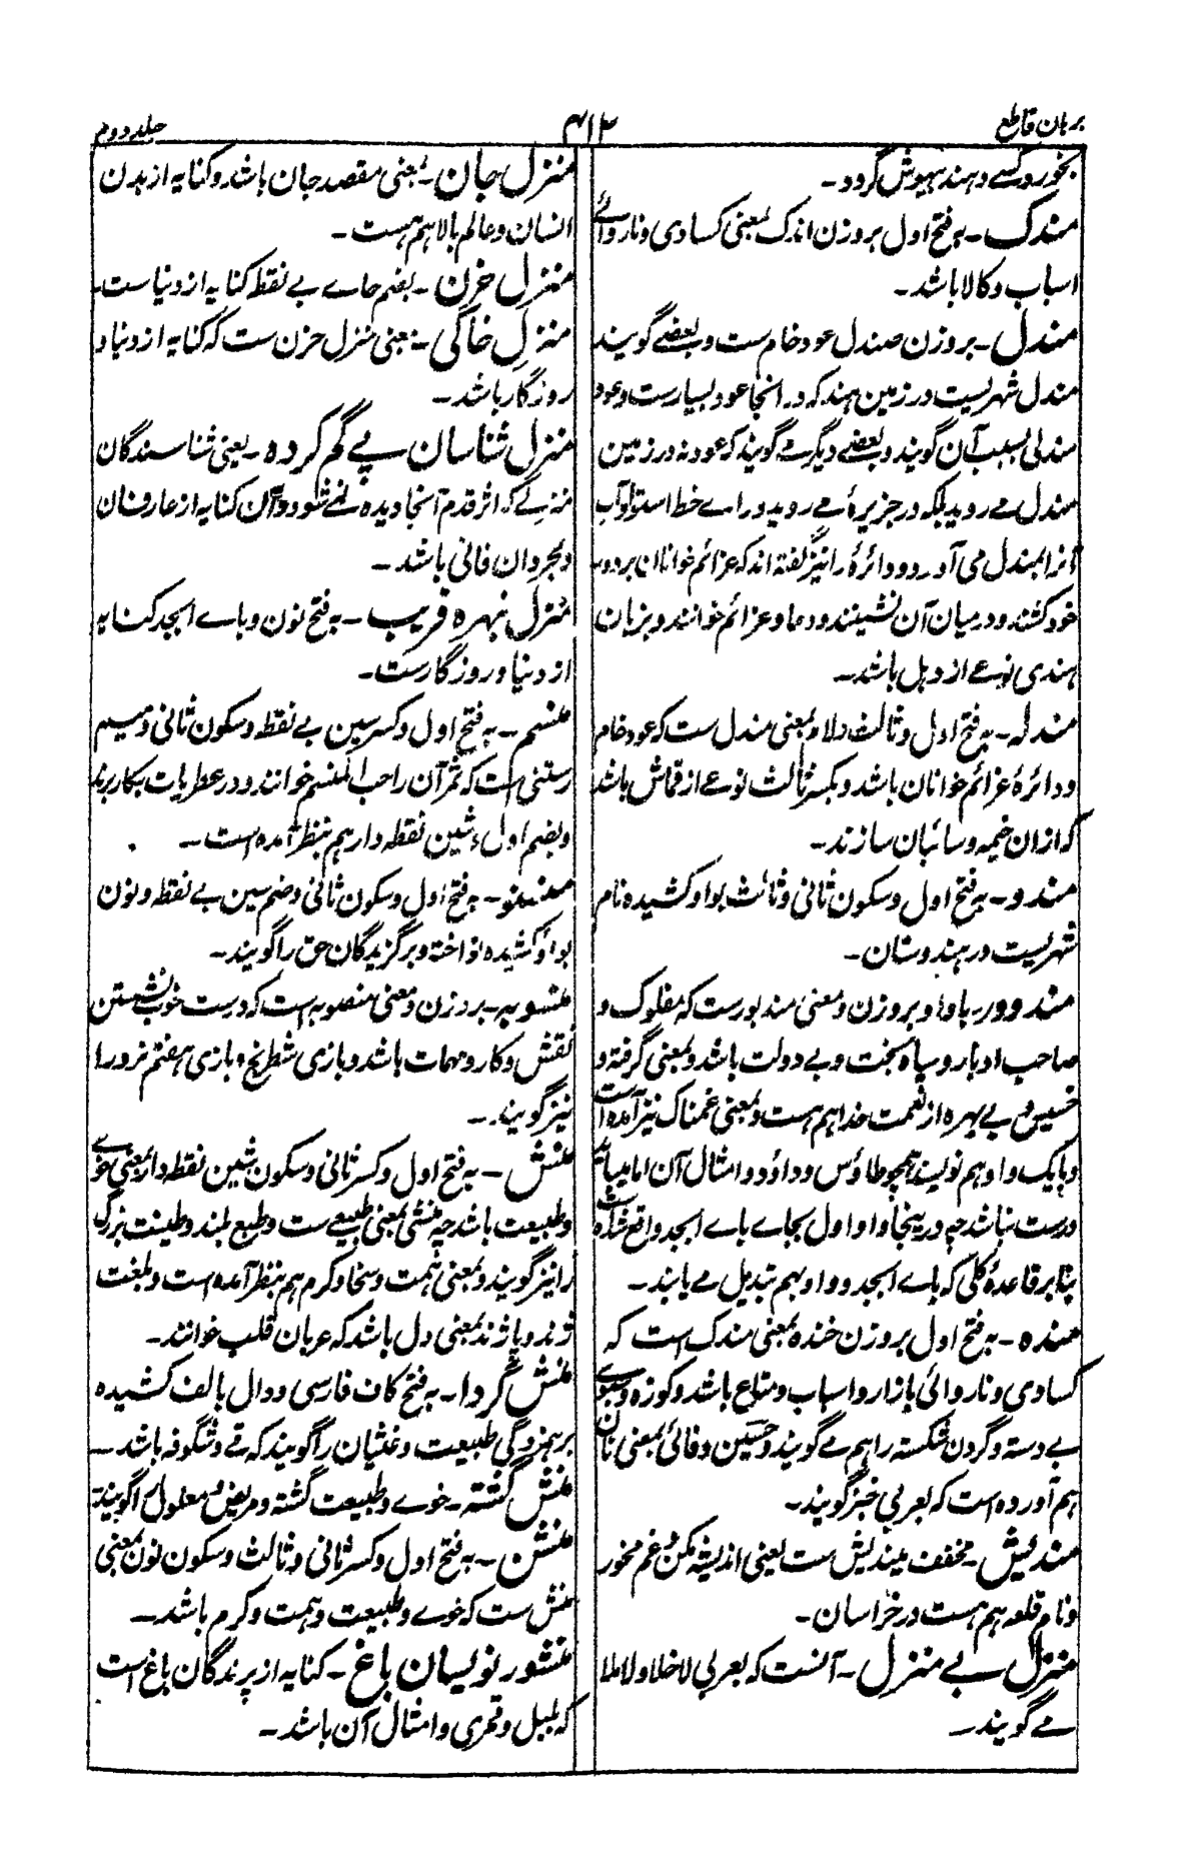 برهان قاطع
۴۱۲
جلد دوم
بخورد کسے دهند بیهوش گردد۔
مندک۔ بفتح اول بروزن اندک بمعنی کسادی و ناروائے
اسباب و کالا باشد۔
مندل۔ بروزن صندل عود خام ست و بعضے گویند
مندل شهریست در زمین هند که در انجا عود بسیارست و عود
مندلی بسبب آن گویند و بعضے دیگر مے گویند که عود نه در زمین
مندل مے روید بلکه در جزیرهٔ مے روید ورا اے خط استوا و آب
آنرا بمندل می آورد و دائرهٔ را نیز گفته اند که عزائم خوانان بر دور
خود کشند و در میان آن نشینند و دعا و عزائم خوانند و بزبان
هندی نوعے از دهل باشد۔
مندله۔ بفتح اول و ثالث و لام بمعنی مندل ست که عود خام
و دائرهٔ عزائم خوانان باشد و بکسر ثالث نوعے از قماش باشد
که ازان خیمه و سائبان سازند۔
مندو۔ بفتح اول و سکون ثانی و ثالث بواو کشیده نام
شهریست در هندوستان۔
مندوور۔ باواو بروزن و معنی مندبورست که مفلوک و
صاحب ادبار و سیاه بخت و بے دولت باشد و بمعنی گرفته و
خسیس و بے بهره از نعمت خدا هم هست و بمعنی غمناک نیز آمده است
و بایک واو هم نویسند همچو طاؤس و داؤد و امثال آن اما میبائے
درست نباشد چه درینجا واو اول بجاے باے ابجد واقع شده است
بنابر قاعدهٔ کلی که باے ابجد و واو بهم تبدیل مے یابند۔
منده۔ بفتح اول بروزن خنده بمعنی مندک است که
کسادی و ناروائی بازار و اسباب و متاع باشد و کوزه و سبوے
بے دسته و گردن شکسته را هم مے گویند و حسین وفائی بمعنی نان
هم آورده است که بعربی خبز گویند۔
مندیش۔ مخفف میندیش ست یعنی اندیشه مکن و غم مخور
و نام قلعه هم هست در خراسان۔
منزل بے منزل۔ آنست که بعربی لاخلا و لاملا
مے گویند۔
منزل جان۔ بمعنی مقصد جان باشد و کنایه از بدن
انسان و عالم بالا هم هست۔
منزل حزن۔ بضم حاے بے نقطه کنایه از دنیاست۔
منزل خاکی۔ بمعنی منزل حزن ست که کنایه از دنیا و
روزگار باشد۔
منزل شناسان پے گم کرده۔ یعنی شناسندگان
منزلے که اثر قدم آنجا دیده نمے شود و آن کنایه از عارفان
و مجردان فانی باشد۔
منزل نبهره فریب۔ بفتح نون و باے ابجد کنایه
از دنیا و روزگارست۔
منسم۔ بفتح اول و کسر سین بے نقطه و سکون ثانی و میم
رستنی است که ثمر آن را حب المنسم خوانند و در عطریات بکار برند
و بضم اول و شین نقطه دار هم بنظر آمده است۔
منسنو۔ بفتح اول و سکون ثانی و ضم سین بے نقطه و نون
بواو کشیده نواخته و برگزیدگان حق را گویند۔
منسوبه۔ بروزن و معنی منصوبه است که درست خوب نشستن
نقش و کار و مهمات باشد و بازی شطرنج و بازی هفتم نرد را
نیز گویند۔
منش۔ بفتح اول و کسر ثانی و سکون شین نقطه دار بمعنی خوے
و طبیعت باشد چه منشی بمعنی طبیعے ست و طبع بلند و طینت بزرگ
را نیز گویند و بمعنی همت و سخا و کرم هم بنظر آمده است و بلغت
ژند و پاژند بمعنی دل باشد که عربان قلب خوانند۔
منش گردا۔ بفتح کاف فارسی و دال بالف کشیده
برهم زدگی طبیعت و غثیان را گویند که قے و شگوفه باشد۔
منش گشته۔ خوے و طبیعت گشته و مریض و معلول را گویند۔
منشن۔ بفتح اول و کسر ثانی و ثالث و سکون نون بمعنی
منش ست که خوے و طبیعت و همت و کرم باشد۔
منشور نویسان باغ۔ کنایه از پرندگان باغ است
که بلبل و قمری و امثال آن باشد۔